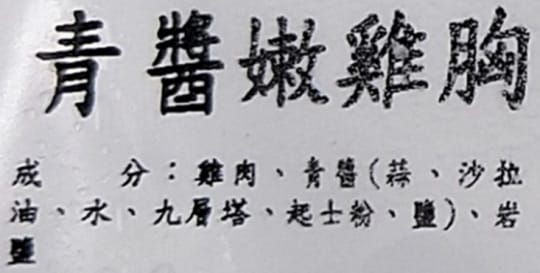 青醬嫩雞胸
成 分：雞肉、青醬(蒜、沙拉
油、水、九層塔、起士粉、鹽)、岩
鹽